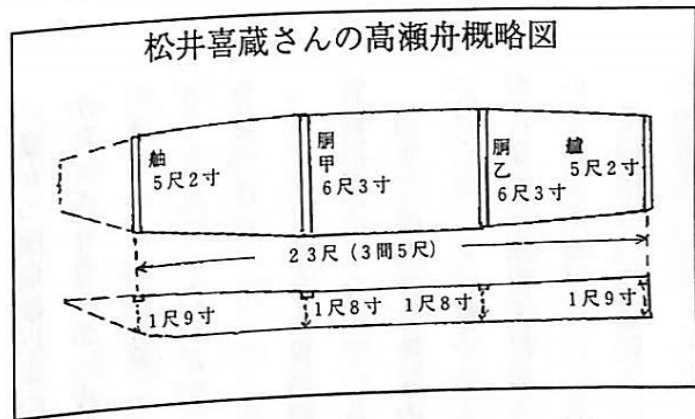 松井喜蔵さんの高瀬舟概略図
舳
5尺2寸
胴甲
6尺3寸
胴乙
6尺3寸
艫
5尺2寸
23尺(3間5尺)
1尺9寸
1尺8寸
1尺8寸
1尺9寸